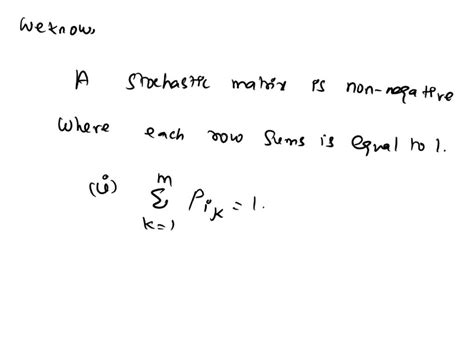 We know,
A stochastic matrix is non-negative
Where each row sums is equal to 1.
(i) m∑k=1 Pik = 1.